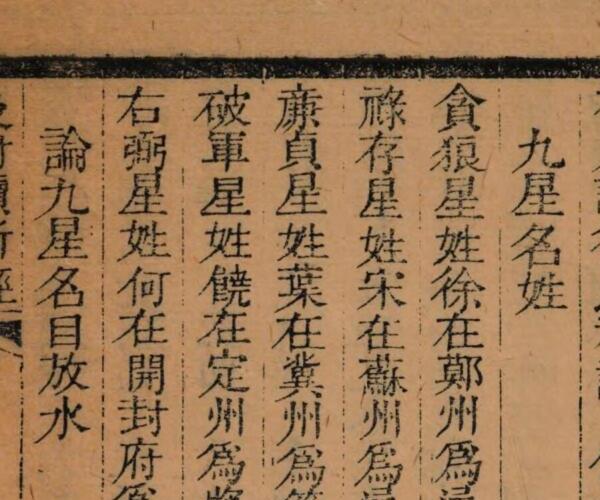 九星名姓
貪狼星姓徐在鄭州爲
祿存星姓宋在蘇州爲
亷貞星姓葉在冀州爲
破軍星姓饒在定州爲
右弼星姓何在開封府爲
論九星名目放水